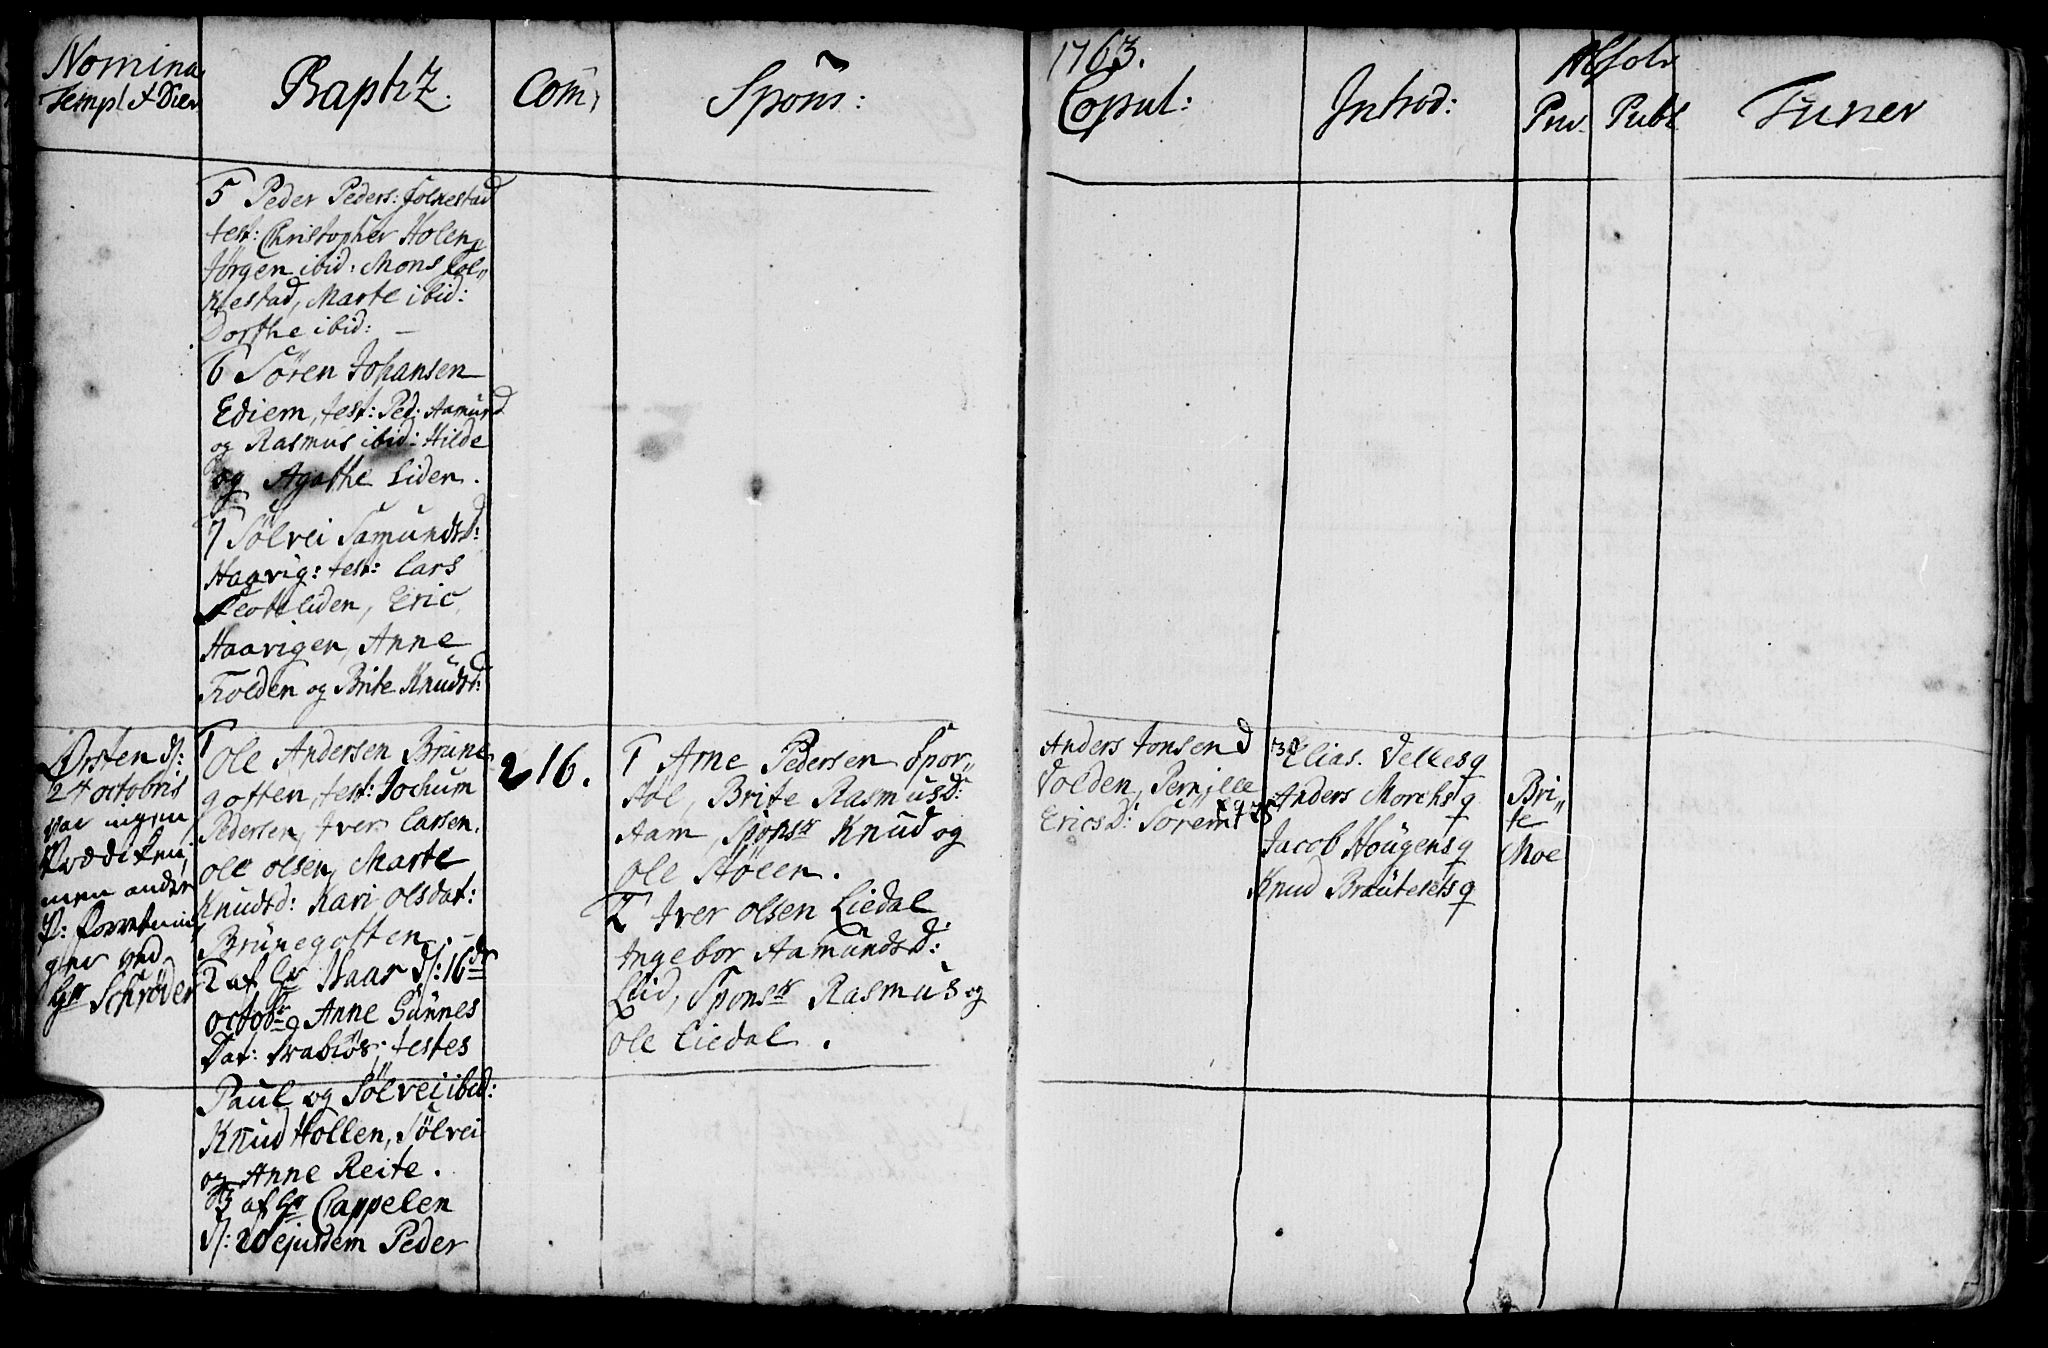 Nomina
Templ & Dier
Baptiz.
Com:
Spons:
1763.
Copul:
Introd:
Absol:
Priv. Publ
Funer
5 Peder Peders: Folkestad
test: Christopher Holen,
Jørgen ibid: Mons Fol„
kestad, Marte ibid:
Dorthe ibid: —
6 Sören Johansen
Ediem, test: Ped: Aamund
og Rasmus ibid: Hilde
og Agathe Liden.
7 Sölvei Samundsd:
Haavig: test: Lars
liden, Eric
Haavigen, Anne
Folden og Brite Knudsd:
Ørsten d:
24 octobris
var ingen
Prædiken,
men andre
P: forretnin
ger ved
Hr Schrøder
1 Ole Andersen Brune
gotten, test: Jochum
Pedersen, Iver Larsen,
ole olsen, Marte
Knudsd: Kari olsdat:
Brünegotten. –
2 af Hr Haar d: 16de
octobr Anne Gunnes
Dat: test­es
Paul og Sölvei ibid:
Knud Hollen, Sölvei
og Anne Reite.
3 af Hr Cappelen
d: 20 ejusdem Peder
216.
1 Arne Pedersen Spor„
støl, Brite Rasmusd:
Aam, Sponsr Knud og
Ole Støeen.
2 Iver olsen Liedal
Ingebor Aamundsd:
Liid, Sponsr Rasmus og
Ole Liedal.
Anders Jonsen
Volden, Pernille
Ericsd:
Elias Velles q
Anders Morchs q
Jacob Hougens q
Knud Brautesets q
Bri„
te
Moe